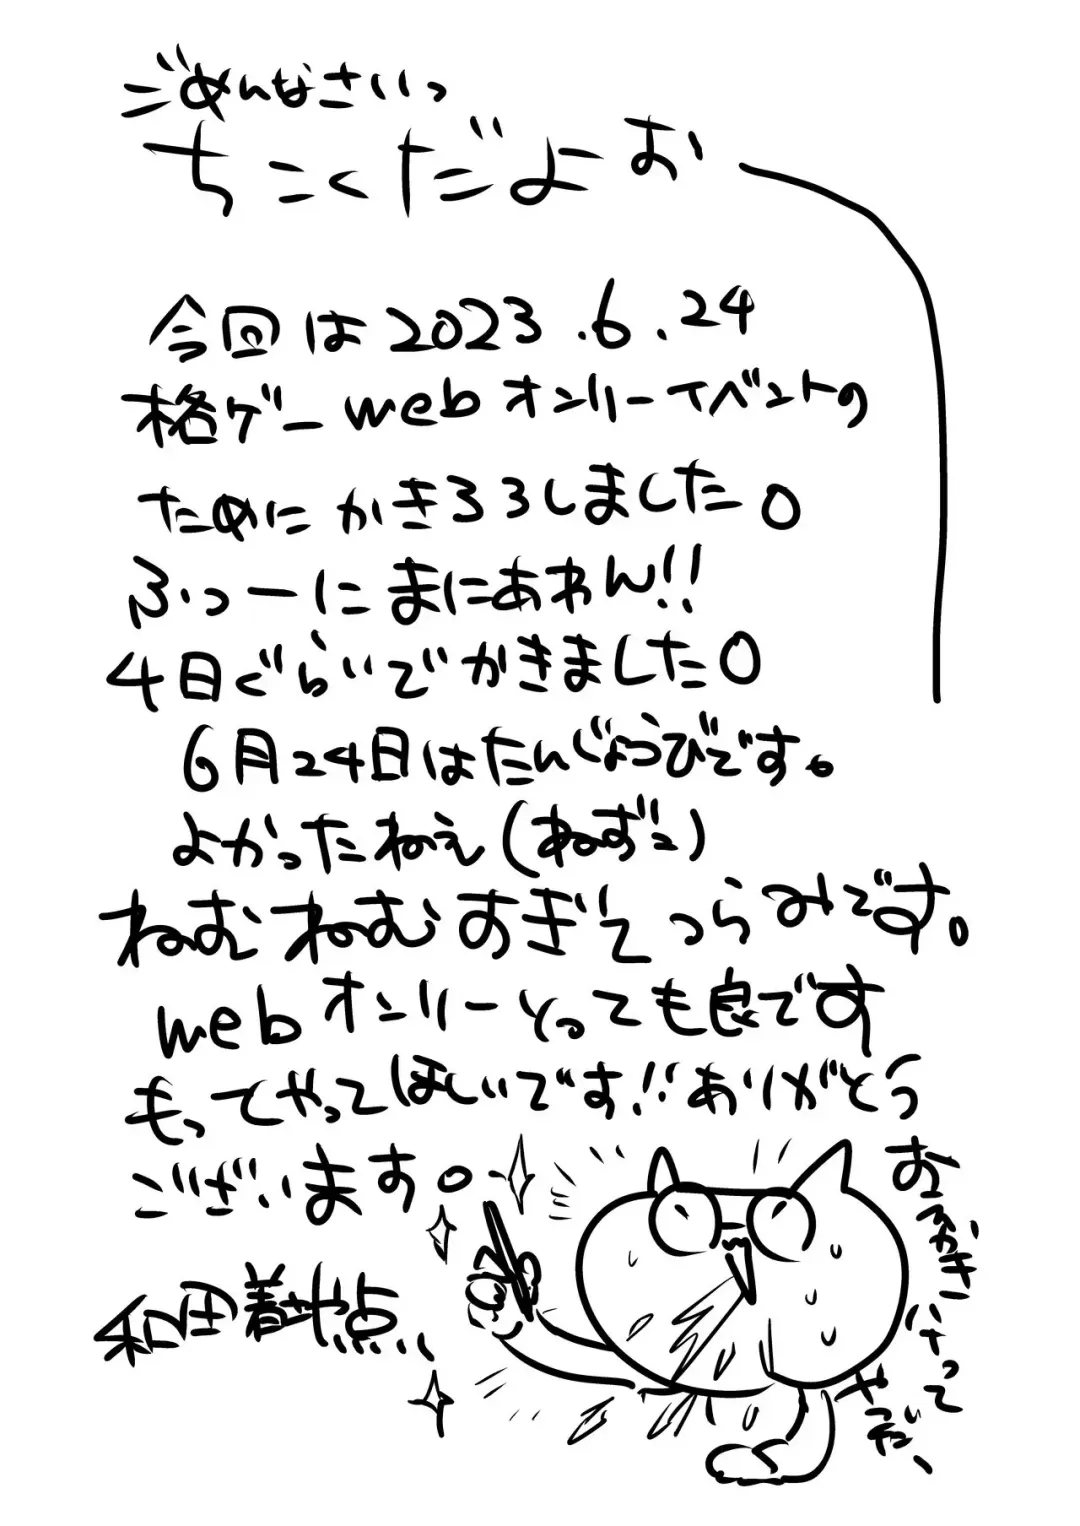 ごめんなさいっ
ちこくだよぉ
今回は2023.6.24
格ゲーwebオンリーイベントの
ためにかきろろしました。
ふっーにまにあわん!!
4日ぐらいでかきました。
6月24日はたんじょうびです。
よかったねえ(ねずこ)
ねむねむすぎてつらみです。
webオンリーとっても良です
もってやってほしいです!!ありがとう
ございます。
和田着や点、、
おえかき
やだ、